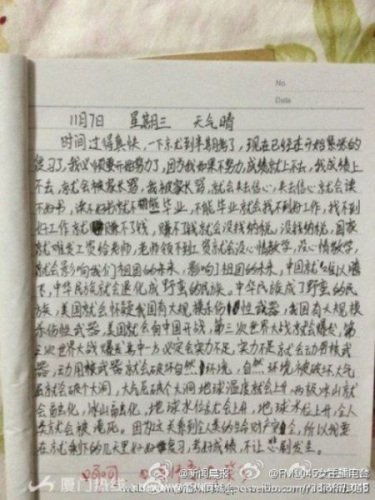 No.
Date
11月7日 星期三 天气晴
时间过得真快,一下就到半期考了,现在已经在开始紧张的
复习了,我必须要开始努力了,因为我如果不努力,成绩就上不去,我成绩上
不去,就会被家长骂,我被家长骂,就会失去信心,失去信心就会读
不好书,读不好书就不能毕业,不能毕业就会找不到好工作,找不到
好工作就赚不了钱,赚不了钱就会没钱纳税,没钱纳税,国家
就难发工资给老师,老师领不到工资就会没心情教学,没心情教学,
就会影响我们祖国的未来,影响了祖国的未来,中国就难以腾
飞,中华民族就会退化成野蛮的民族,中华民族成了野蛮的民
族,美国就会怀疑我国有大规模杀伤性武器,我国有大规模
杀伤性武器,美国就会向中国开战,第三次世界大战就会爆发,第
三次世界大战爆发其中一方必定会实力不足,实力不足就会动用核武
器,动用核武器就会破坏自然环境,自然环境被破坏大气
层就会破个大洞,大气层破个大洞地球温度就会上升,两极冰山就
会融化,冰山融化,地球水位就会上升,地球水位上升,全人
类就会被淹死。因为这关系到全人类的生命财产安全,所以我要
在就剩下的几天里好好复习,考好成绩,不让悲剧发生。
呵呵
@新闻晨报
@FM1045女主播电台
厦门热线